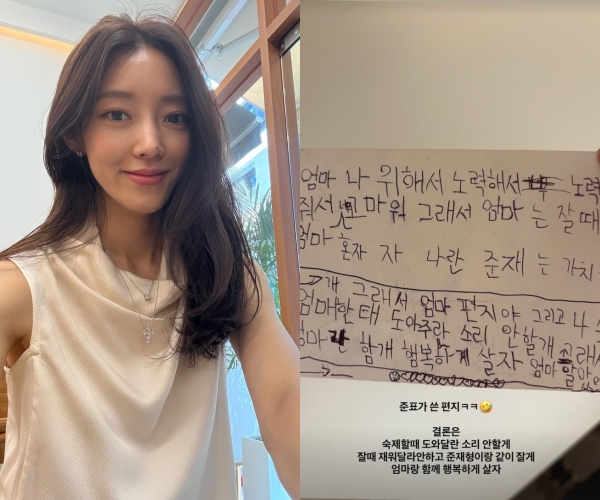 엄마 나 위해서 노력해서 노력
줘서 고마워 그래서 엄마는 잘때
엄마는 혼자 자 나란 준재는 가치
개 그래서 엄마 편지야 그리고 나
엄매한태 도아주란 소리 안할개 그래서
함개 행복하게 살자 엄마
준표가 쓴 편지ㅋㅋ🤣
결론은
숙제할때 도와달란 소리 안할게
잘때 재워달라안하고 준재형이랑 같이 잘게
엄마랑 함께 행복하게 살자